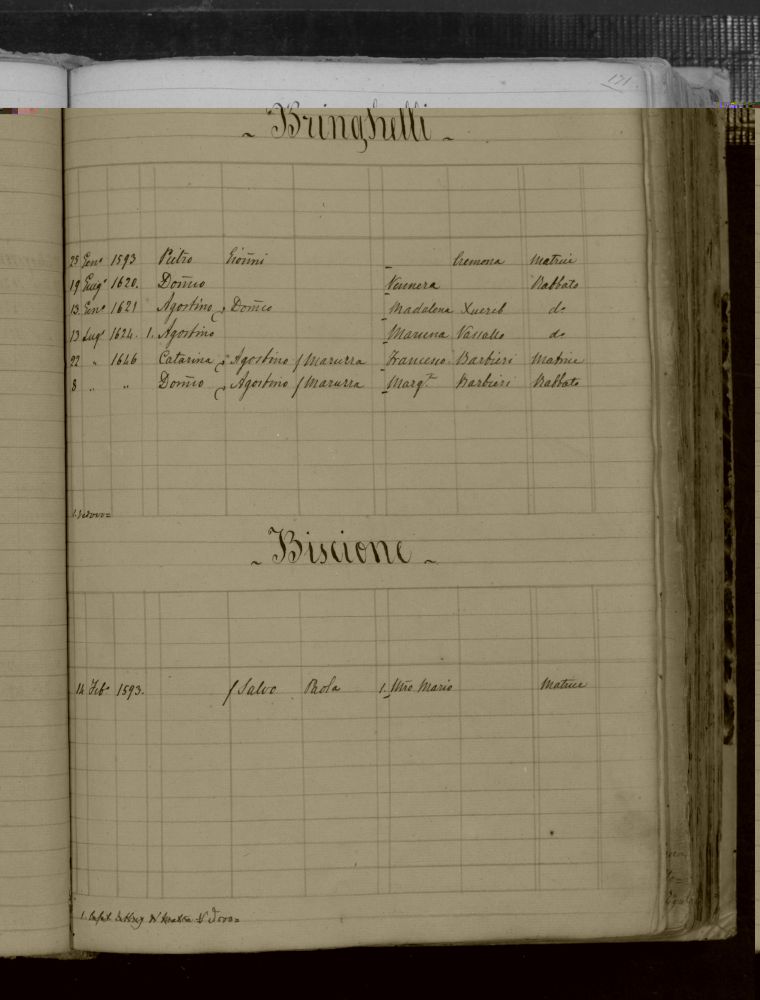 171.
- Bringhelli -
25 Gen.º 1593 Pietro Gioñni Cremona Matrice
19 Giug.º 1620. Doñico Vennera Rabbato
13 Gen.º 1621 Agostino Doñico Madalena Xuereb do
13 Lug.º 1624. 1. Agostino Vassallo do
22 " 1646 Catarina Agostino f Maruzza Francesco Barbieri Matrice
8 " " Doñico Agostino f Maruzza Marg.ta Barbieri Rabbato
1. Vedovo=
- Biscione -
14 Feb.º 1593. f Salvo Paola 1. Mro Mario Matrice